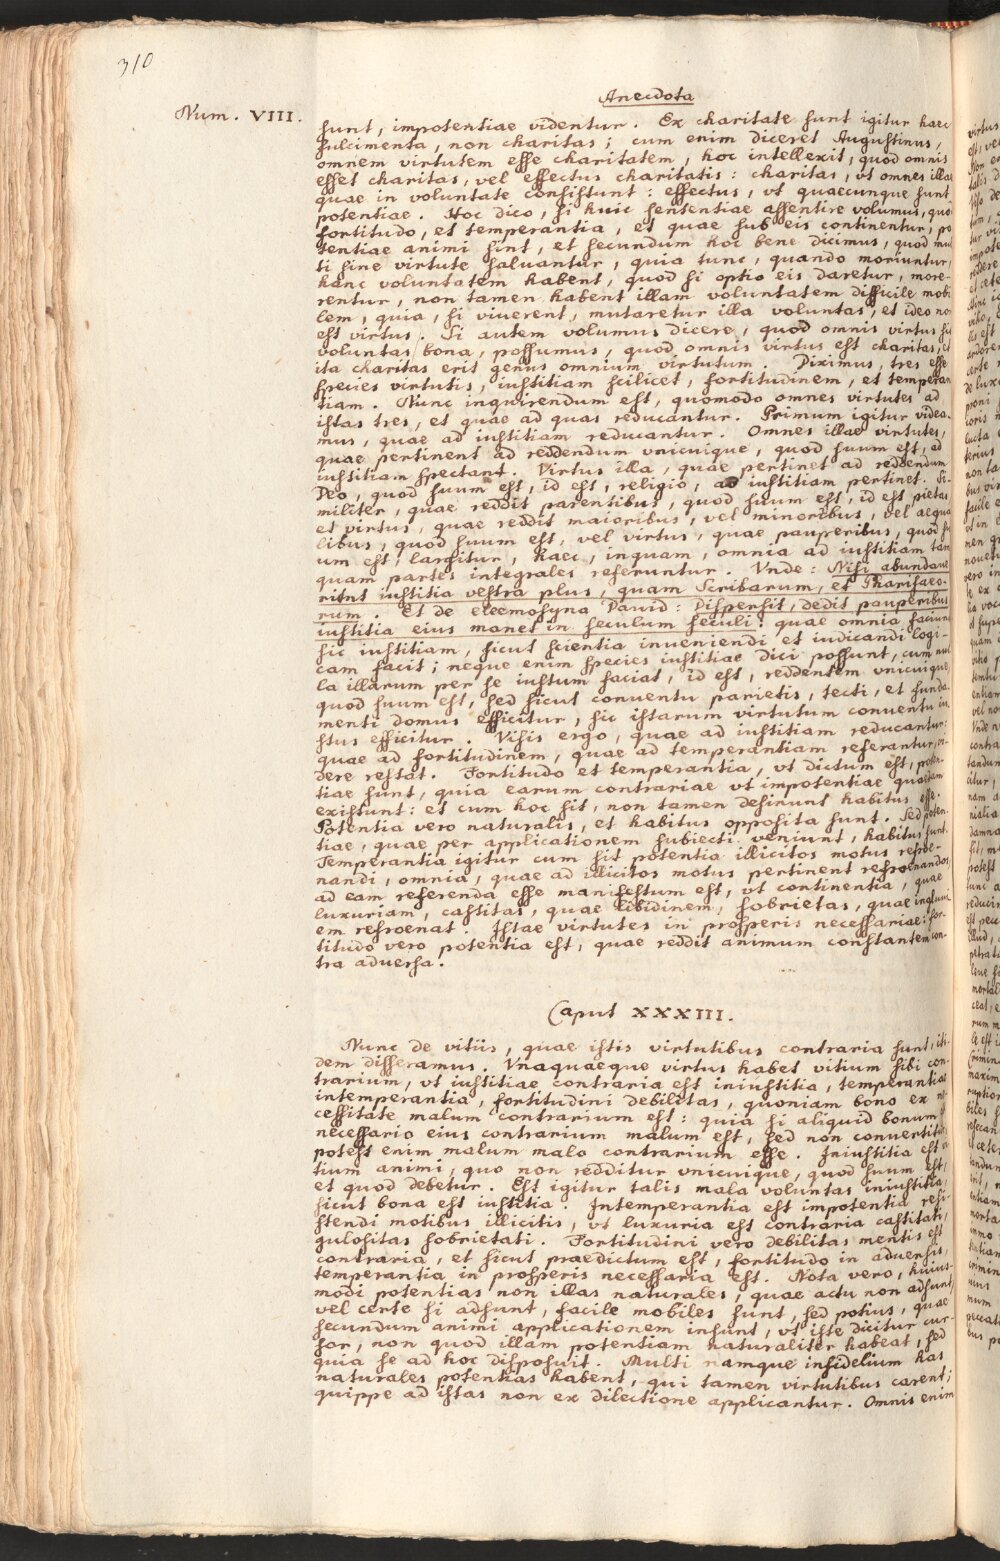 310
Anecdota
Num. VIII.
sunt, impotentiae videntur. Ex charitate sunt igitur haec
fulcimenta, non charitas; cum enim diceret Augustinus,
omnem virtutem esse charitatem, hoc intellexit, quod omnis
esset charitas, vel effectus charitatis: charitas, vt omnes illae
quae in voluntate consistunt: effectus, vt quaecunque sunt
potentiae. Hoc dico, si huic sententiae assentire volumus, quod
fortitudo, et temperantia, et quae sub eis continentur, po
tentiae animi sint, et secundum hoc bene dicimus, quod mul
ti sine virtute saluantur, quia tunc, quando moriuntur,
hanc voluntatem habent, quod si optio eis daretur, more-
rentur, non tamen habent illam voluntatem difficile mobi
lem, quia, si viuerent, mutaretur illa voluntas, et ideo no
est virtus. Si autem volumus dicere, quod omnis virtus sit
voluntas bona, possumus, quod omnis virtus est charitas, et
ita charitas erit genus omnium virtutum. Diximus, tres esse
species virtutis, iustitiam scilicet, fortitudinem, et temperan
tiam. Nunc inquirendum est, quomodo omnes virtutes ad
istas tres, et quae ad quas reducantur. Primum igitur videa
mus, quae ad iustitiam reducantur. Omnes illae virtutes,
quae pertinent ad reddendum vnicuique, quod suum est, ad
iustitiam spectant. Virtus illa, quae pertinet ad reddendum
Deo, quod suum est, id est, religio, ad iustitiam pertinet. Si-
militer, quae reddit parentibus, quod suum est, id est pietas
et virtus, quae reddit maioribus, vel minoribus, vel aequa
libus, quod suum est, vel virtus, quae pauperibus, quod su
um est, largitur, haec, inquam, omnia ad iustitiam tan
quam partes integrales referuntur. Vnde: Nisi abundaue
rint iustitia vestra plus, quam Scribarum, et Pharisaeo-
rum. Et de eleemosyna Dauid: Dispersit, dedit pauperibus
iustitia eius manet in seculum seculi: quae omnia faciunt
sic iustitiam, sicut scientia inueniendi et iudicandi logi-
cam facit; neque enim species iustitiae dici possunt, cum nul
la illarum per se iustum faciat, id est, reddentem vnicuique,
quod suum est, sed sicut conuentu parietis, tecti, et funda-
menti domus efficitur, sic istarum virtutum conuentu iu
stus efficitur. Visis ergo, quae ad iustitiam reducantur:
quae ad fortitudinem, quae ad temperantiam referantur, vi-
dere restat. Fortitudo et temperantia, vt dictum est, poten-
tiae sunt, quia earum contrariae vt impotentiae quaedam
existunt: et cum hoc sit, non tamen desinunt habitus esse.
Potentia vero naturalis, et habitus opposita sunt. Sed poten-
tiae, quae per applicationem subiecti veniunt, habitus sunt.
Temperantia igitur cum sit potentia illicitos motus refroe-
nandi, omnia, quae ad illicitos motus pertinent refroenandos,
ad eam referenda esse manifestum est, vt continentia, quae
luxuriam, castitas, quae libidinem, sobrietas, quae ingluui
em refroenat. Istae virtutes in prosperis necessariae: for-
titudo vero potentia est, quae reddit animum constantem con-
tra aduersa.
Caput XXXIII.
Nunc de vitiis, quae istis virtutibus contraria sunt, iti-
dem disseramus. Vnaquaeque virtus habet vitium sibi con-
trarium, vt iustitiae contraria est iniustitia, temperantiae
intemperantia, fortitudini debilitas, quoniam bono ex ne-
cessitate malum contrarium est: quia si aliquid bonum
necessario eius contrarium malum est, sed non conuertitur
potest enim malum malo contrarium esse. Iniustitia est vi
tium animi, quo non redditur vnicuique, quod suum est,
et quod debetur. Est igitur talis mala voluntas iniustitia,
sicut bona est iustitia. Intemperantia est impotentia resi-
stendi motibus illicitis, vt luxuria est contraria castitati,
gulositas sobrietati. Fortitudini vero debilitas mentis est
contraria, et sicut praedictum est, fortitudo in aduersis,
temperantia in prosperis necessaria est. Nota vero, huius-
modi potentias non illas naturales, quae actu non adsunt,
vel certe si adsunt, facile mobiles sunt, sed potius, quae
secundum animi applicationem insunt, vt iste dicitur cur-
sor, non quod illam potentiam naturaliter habeat, sed
quia se ad hoc disposuit. Multi namque infidelium has
naturales potentias habent, qui tamen virtutibus carent;
quippe ad istas non ex dilectione applicantur. Omnis enim